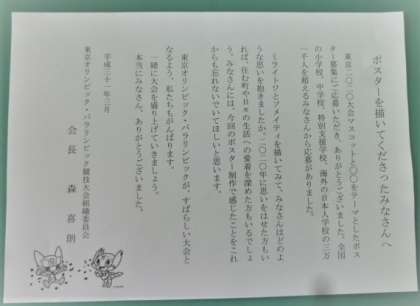 ポスターを描いてくださったみなさんへ
東京二〇二〇大会マスコットと〇〇をテーマとしたポス
ター募集にご応募いただき、ありがとうございました。全国
の小学校、中学校、特別支援学校、海外の日本人学校の三万
一千人を超えるみなさんから応募がありました。
ミライトワとソメイティを描いてみて、みなさんはどのよ
うな思いを抱きましたか。二〇二〇年に思いをはせた方もい
れば、住む町や日本の生活への愛着を深めた方もいるでしょ
う。みなさんには、今回のポスター制作で感じたことをこれ
からも忘れないでいてほしいと思います。
東京オリンピック・パラリンピックが、すばらしい大会と
なるよう、私たちもがんばります。
一緒に大会を盛り上げていきましょう。
本当にみなさん、ありがとうございました。
平成三十一年三月
東京オリンピック・パラリンピック競技大会組織委員会
会長 森 喜朗